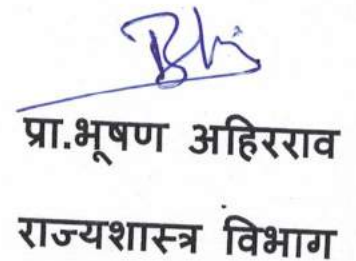 प्रा.भूषण अहिरराव
राज्यशास्त्र विभाग